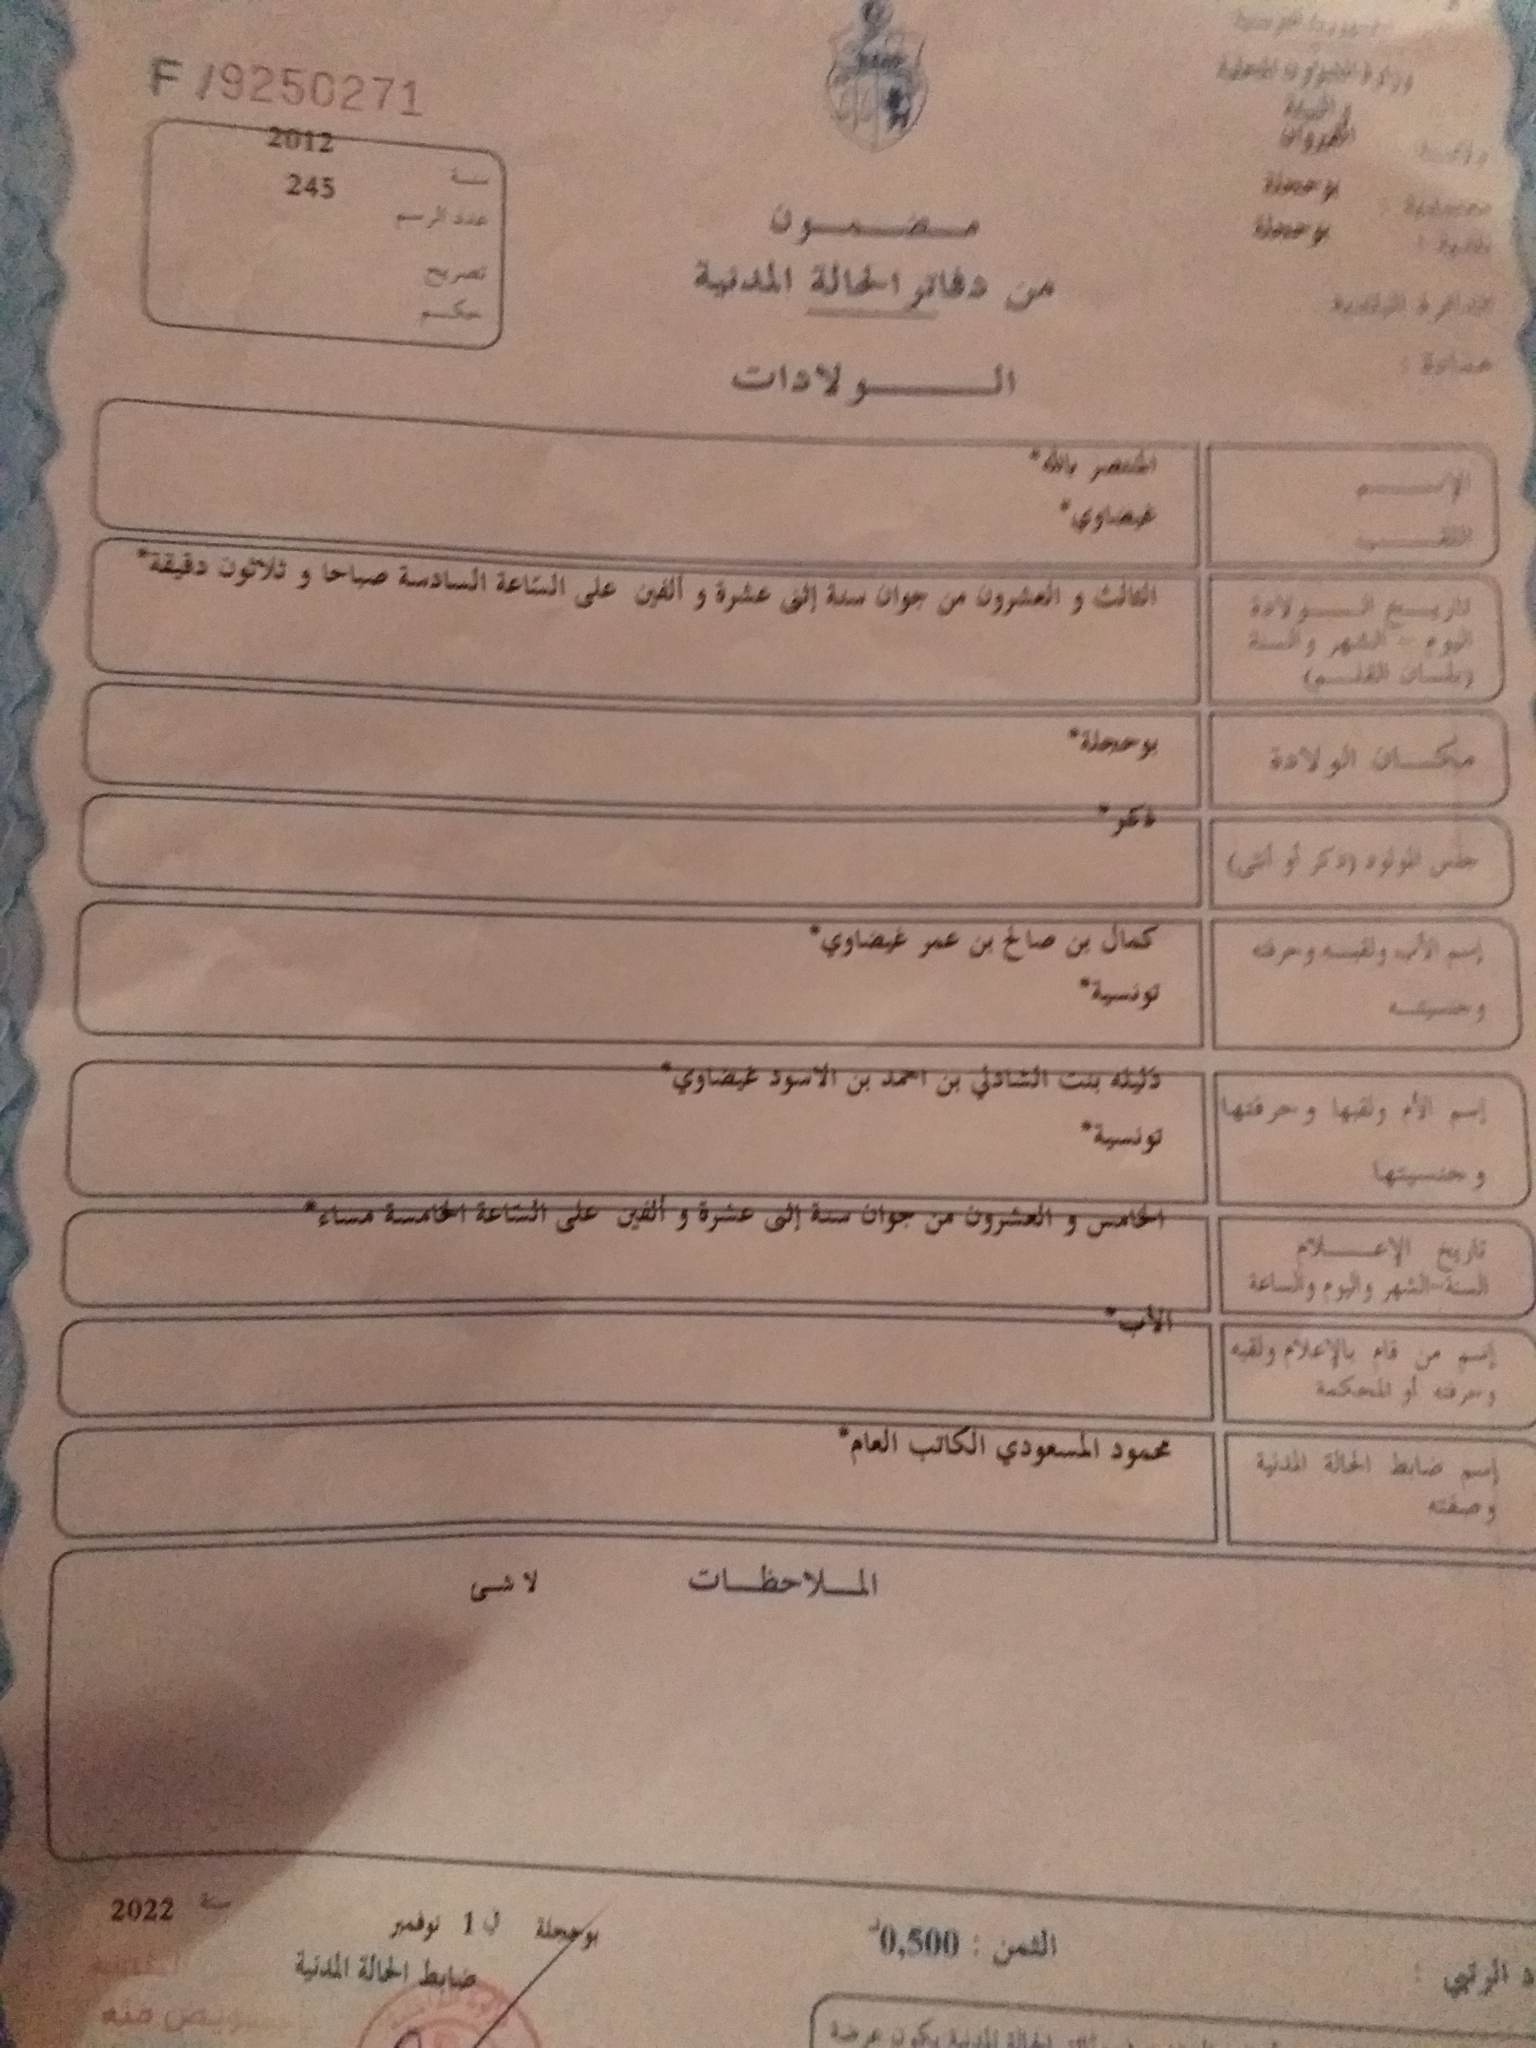 وزارة الشؤون المحلية
والبيئة
القيروان
بوحجلة
بوحجلة
الدائرة البلدية
عمادة :
F /9250271
سنة 2012
عدد الرسم 245
تصريح
حكم
مضمون
من دفاتر الحالة المدنية
الولادات
الإسم المنتصر بالله*
اللقب غيضاوي*
تاريخ الولادة
اليوم - الشهر والسنة
(بلسان القلم)
الثالث و العشرون من جوان سنة إثنى عشرة و ألفين على الساعة السادسة صباحا و ثلاثون دقيقة*
مكان الولادة بوحجلة*
جنس المولود (ذكر أو أنثى) ذكر*
إسم الأب ولقبه وحرفته كمال بن صالح بن عمر غيضاوي*
وجنسيته تونسية*
إسم الأم ولقبها وحرفتها دليله بنت الشاذلي بن احمد بن الاسود غيضاوي*
وجنسيتها تونسية*
تاريخ الإعلام
السنة-الشهر واليوم والساعة
الخامس و العشرون من جوان سنة إثنى عشرة و ألفين على الساعة الخامسة مساء*
إسم من قام بالإعلام ولقبه
وحرفته أو المحكمة
الأب*
إسم ضابط الحالة المدنية
وصفته
محمود المسعودي الكاتب العام*
الملاحظات لا شئ
بوحجلة في 1 نوفمبر سنة 2022
ضابط الحالة المدنية
الثمن : 0,500د
د الرتبي :